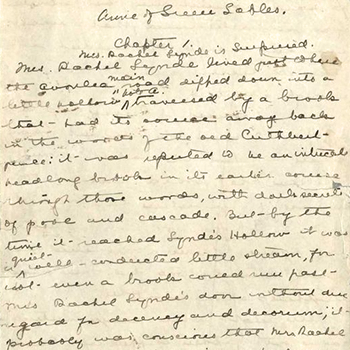 Anne of Green Gables.
Chapter 1.
Mrs. Rachel Lynde is Surprised.
Mrs. Rachel Lynde lived just where
main
the Avonlea road dipped down into a
little hollow traversed by a brook
that had its source away back
in the woods of the old Cuthbert
place: it was reputed to be an intricate
headlong brook in its earlier course
through those woods, with dark secrets
of pool and cascade. But by the
time it reached Lynde's Hollow it was
quiet
a well-conducted little stream, for
not even a brook could run past
Mrs Rachel Lynde's door without due
regard for decency and decorum; it
probably was conscious that Mrs Rachel